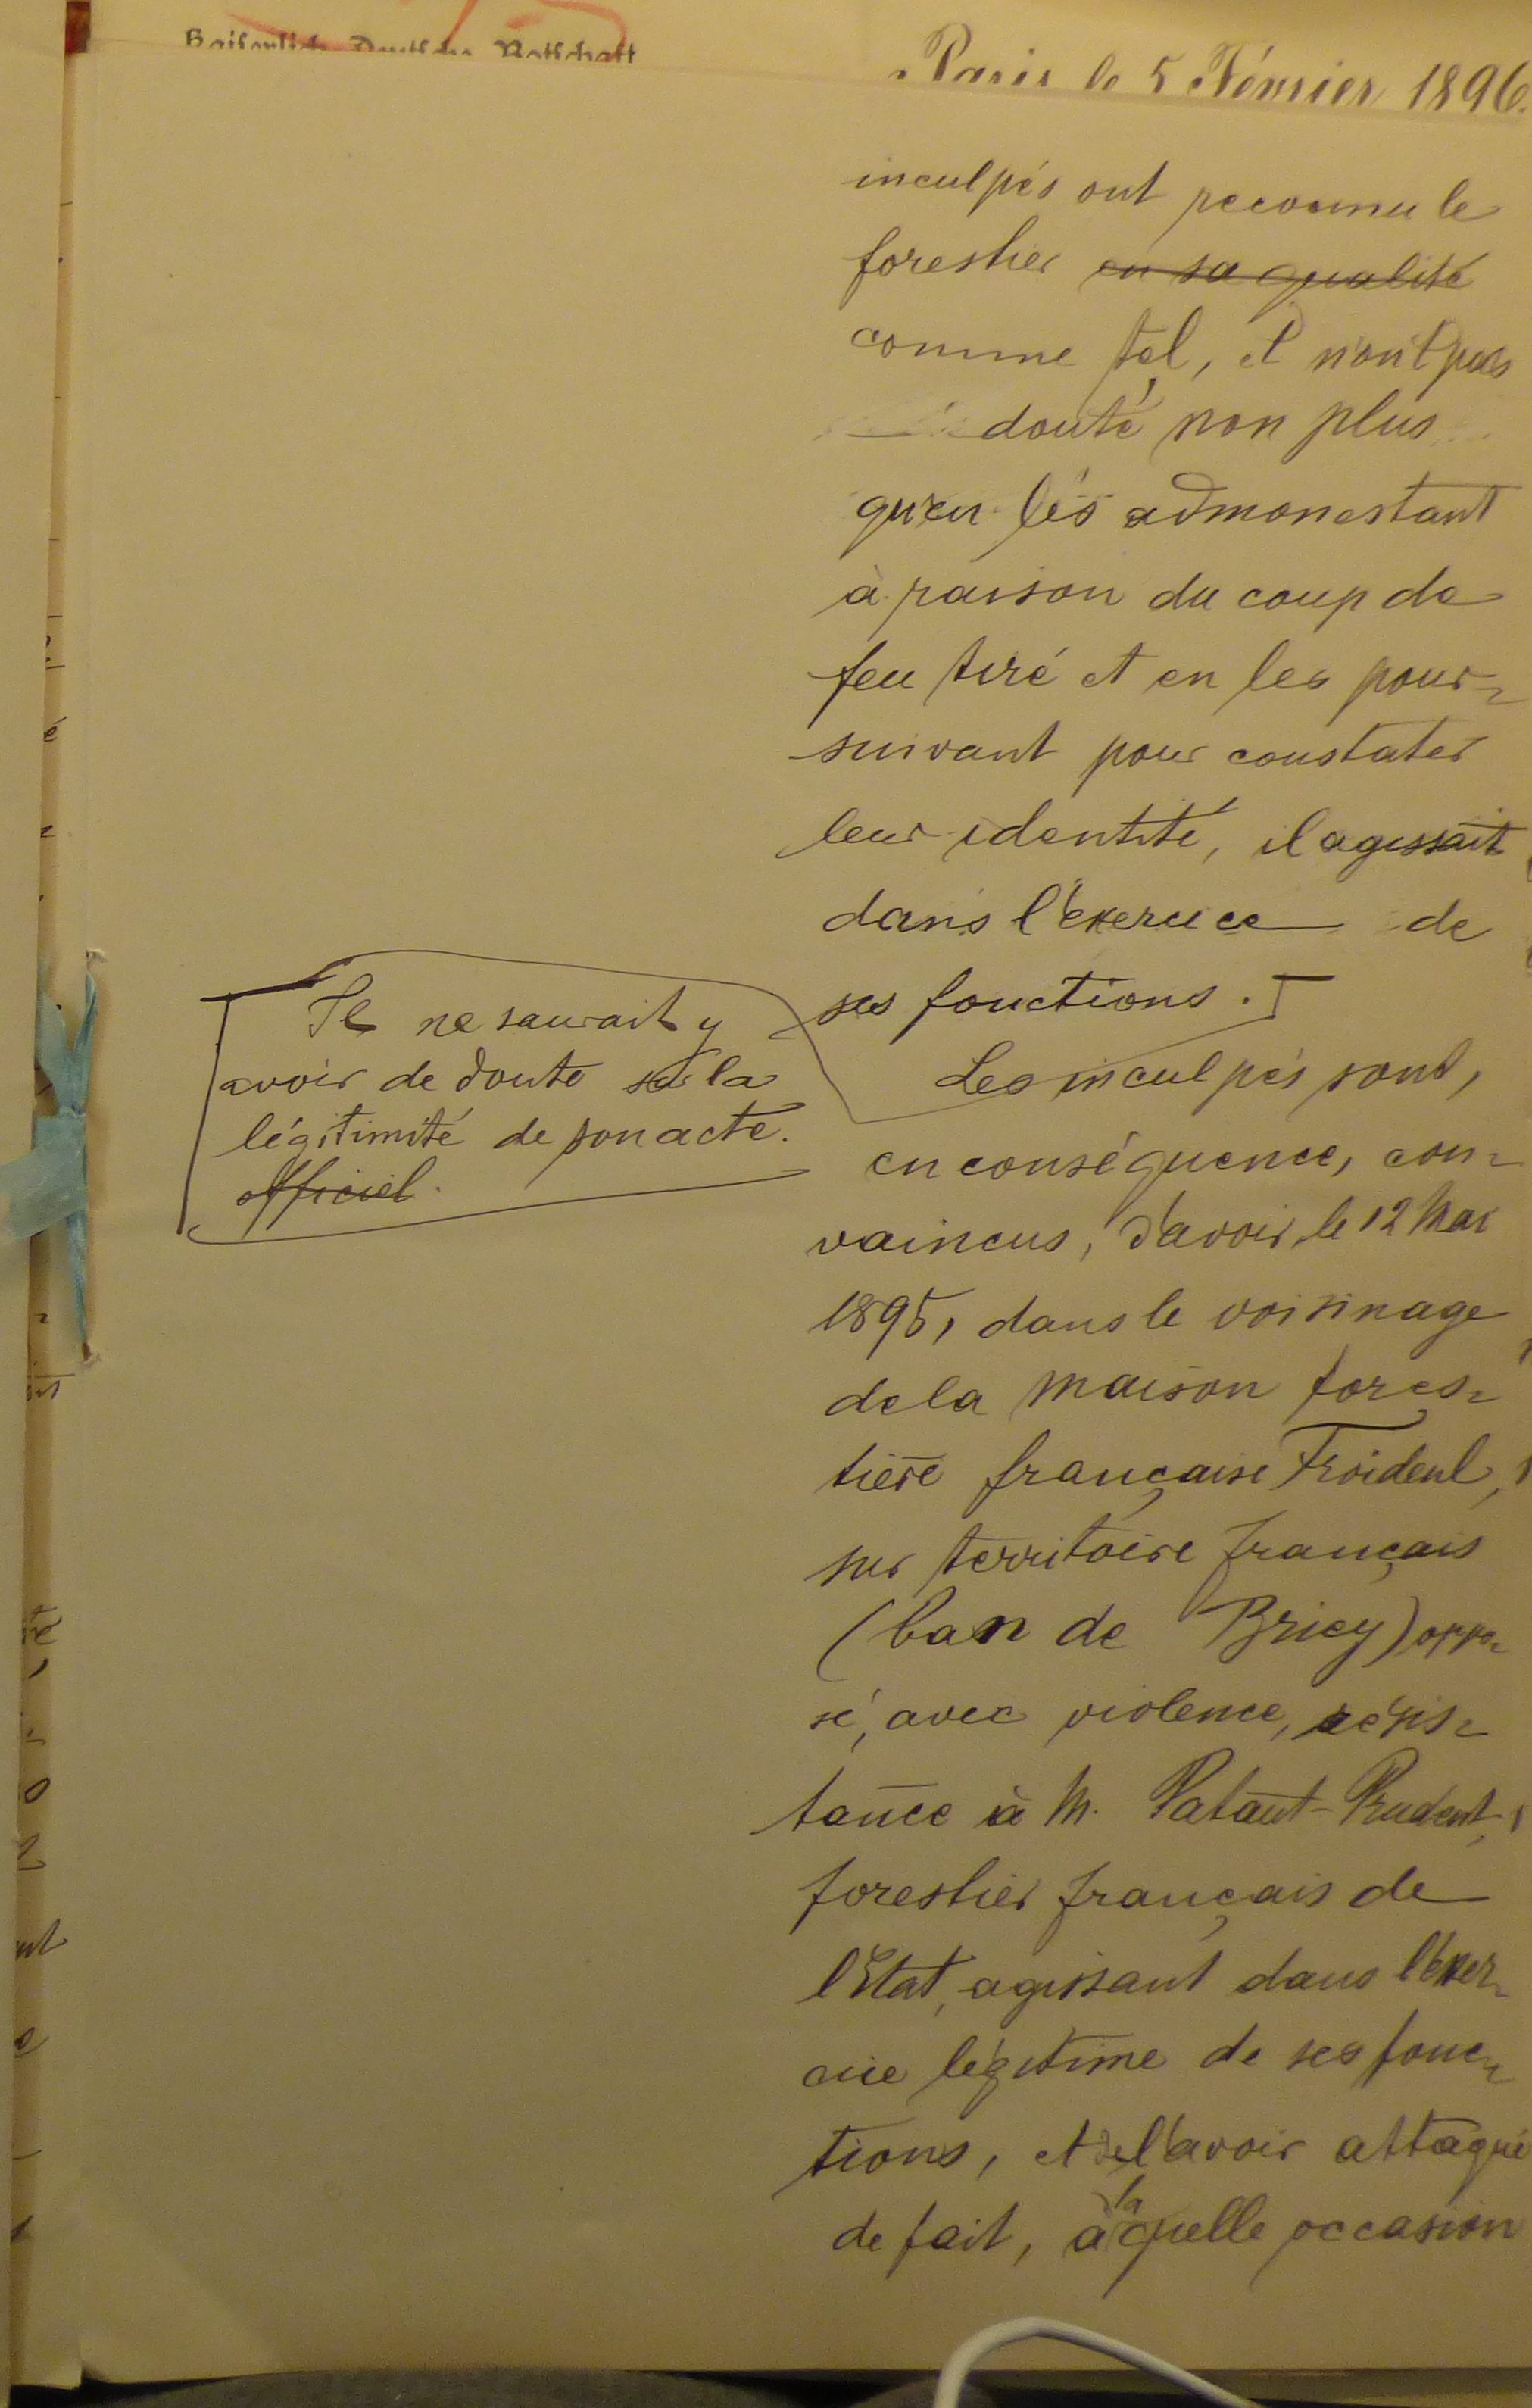 Kaiserlich Deutsche Botschaft
Paris le 5 Février 1896.
inculpés ont reconnu le
forestier en sa qualité
comme tel, et n'ont pas
douté non plus
qu'en les admonestant
à raison du coup de
feu tiré et en les pour-
suivant pour constater
leur identité, il agissait
dans l'exercice de
ses fonctions.
Il ne saurait y
avoir de doute sur la
légitimité de son acte.
officiel.
Les inculpés sont,
en conséquence, con-
vaincus, d'avoir, le 12 Mai
1895, dans le voisinage
de la maison fores-
tière française Froideul,
sur territoire français
(ban de Briey) oppo-
sé, avec violence, résis-
tance à M. Pataut-Prudent,
forestier français de
l'Etat, agissant dans l'exer-
cice légitime de ses fonc-
tions, et de l'avoir attaqué
de fait, à laquelle occasion